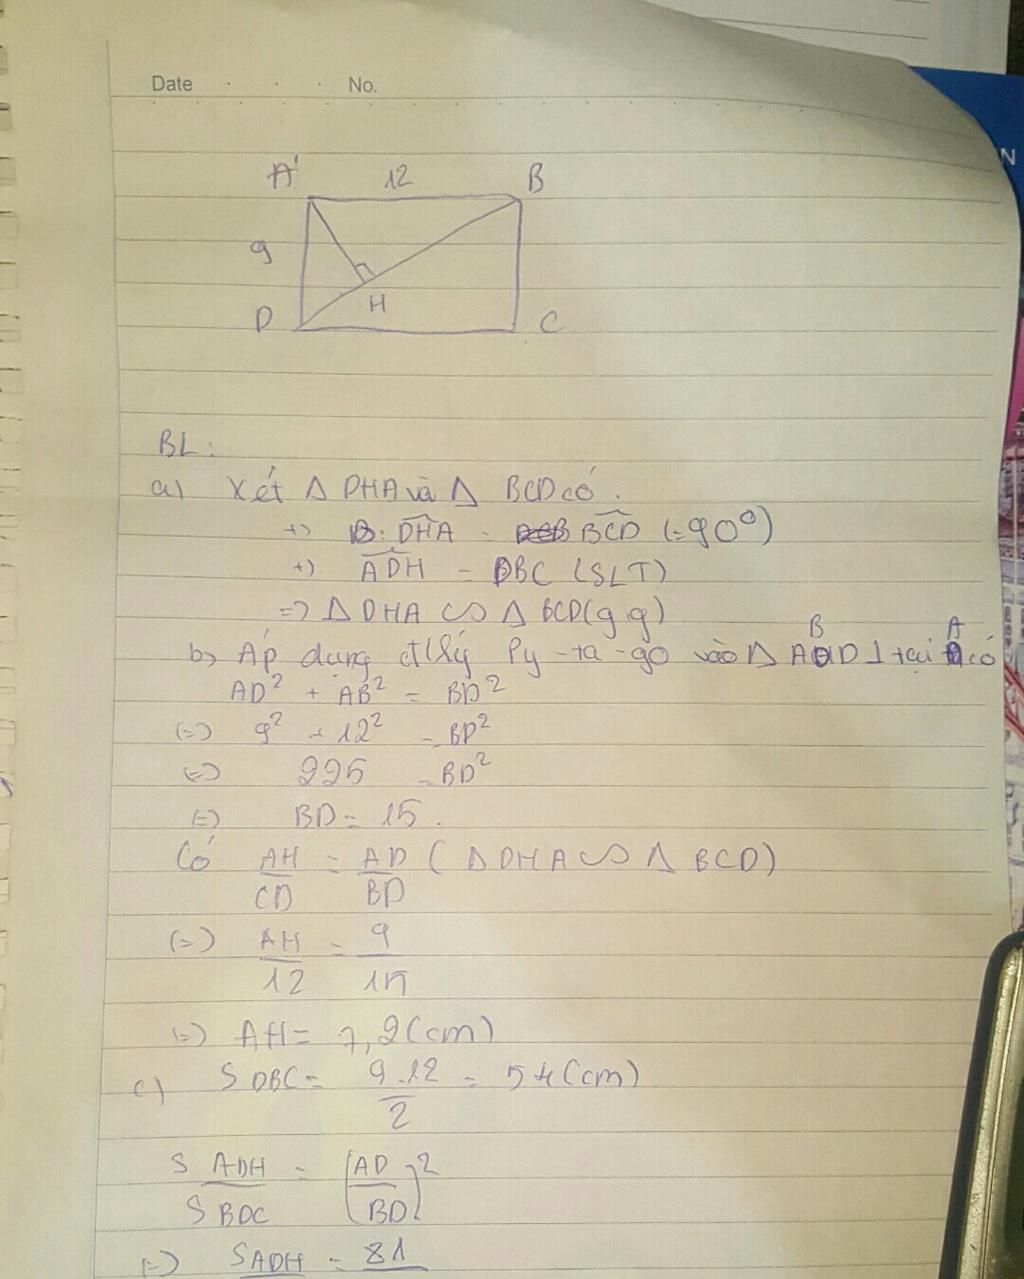 Date . . . No.
A 12 B
9
H
D C
BL:
a) Xét Δ DHA và Δ BCD có.
+) DHA = BCD (=90°)
+) ADH = DBC (SLT)
=> Δ DHA ∽ Δ BCD (g g)
b) Áp dụng đ/lý Py-ta-go vào Δ ABD ⊥ tại A có
AD² + AB² = BD²
(=) 9² + 12² = BD²
(=) 225 = BD²
(=) BD = 15.
Có AH/CD = AD/BD (Δ DHA ∽ Δ BCD)
(=) AH/12 = 9/15
(=) AH = 7,2 (cm)
c) S DBC = 9.12/2 = 54 (cm)
S ADH / S BDC = (AD/BD)²
(=) S ADH = 81
N